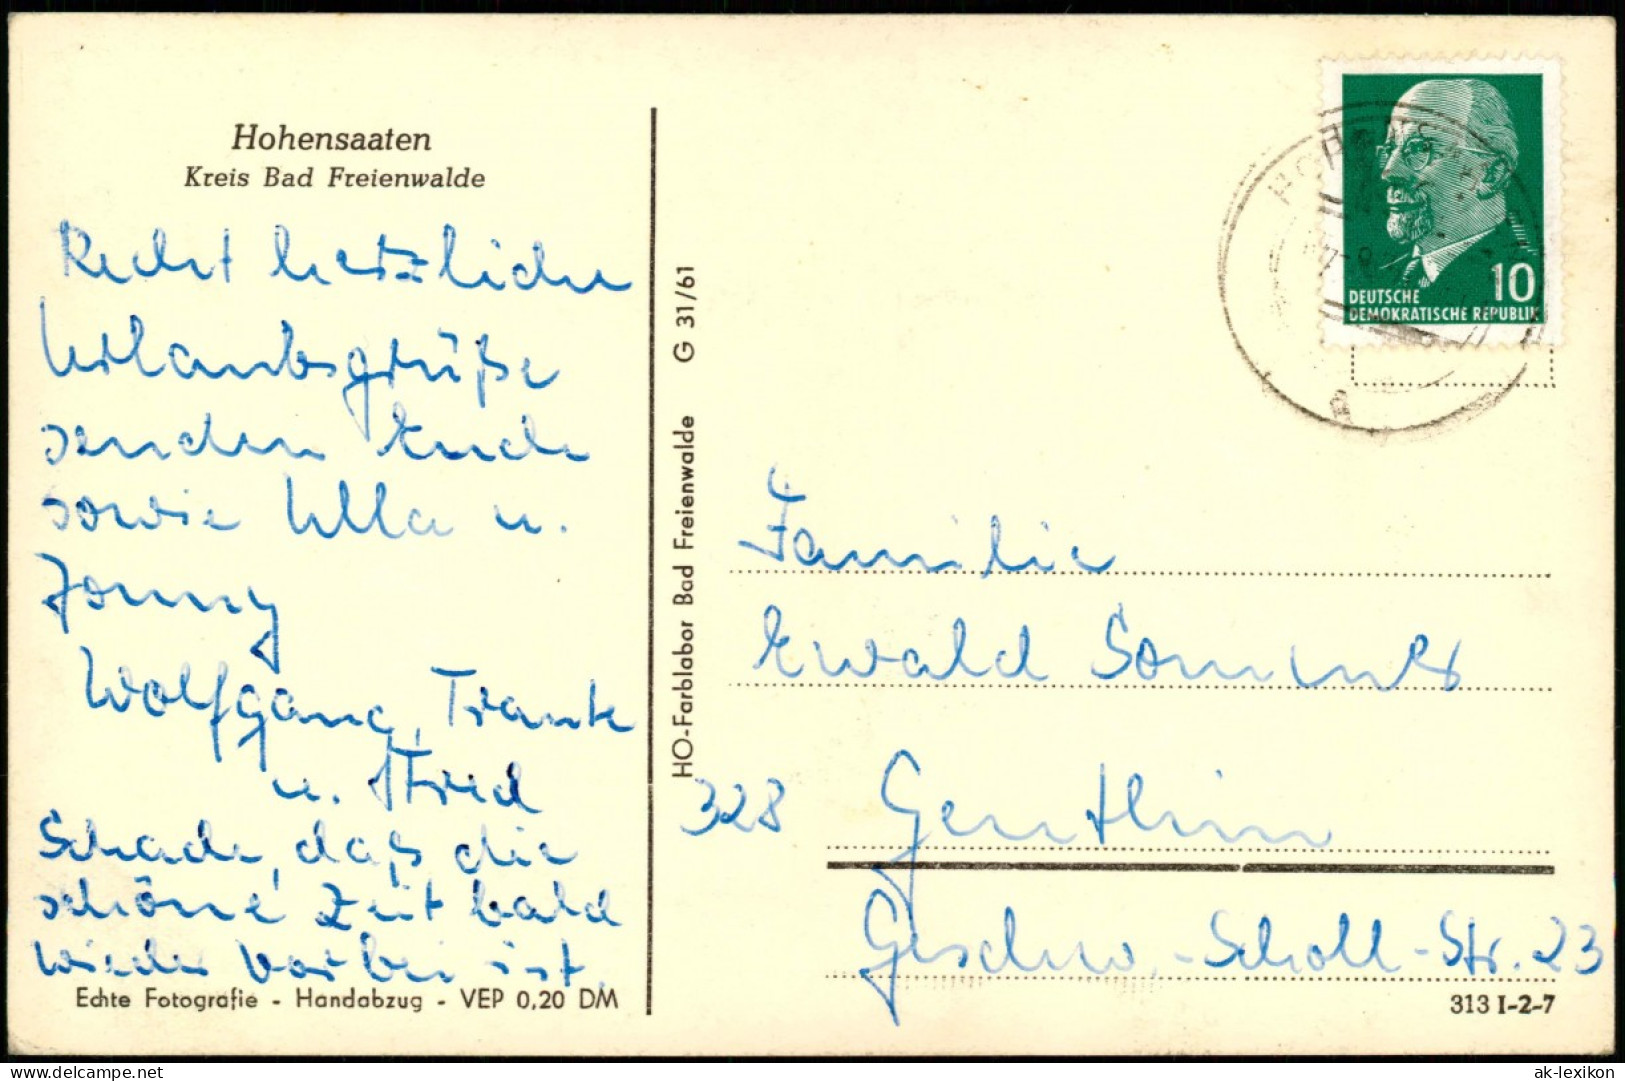 Hohensaaten
Kreis Bad Freienwalde
Recht herzliche
Urlaubsgrüße
senden Euch
sowie Ulla u.
Jonny
Wolfgang, Traute
u. Fred
Schade, daß die
schöne Zeit bald
wieder vorbei ist.
Echte Fotografie - Handabzug - VEP 0,20 DM
HO-Farblabor Bad Freienwalde G 31/61
10
DEUTSCHE
DEMOKRATISCHE REPUBLIK
HOHENSAATEN
a
Familie
Ewald Sommer
328 Genthin
Geschw.-Scholl-Str. 23
313 I-2-7
www.delcampe.net
ak-lexikon